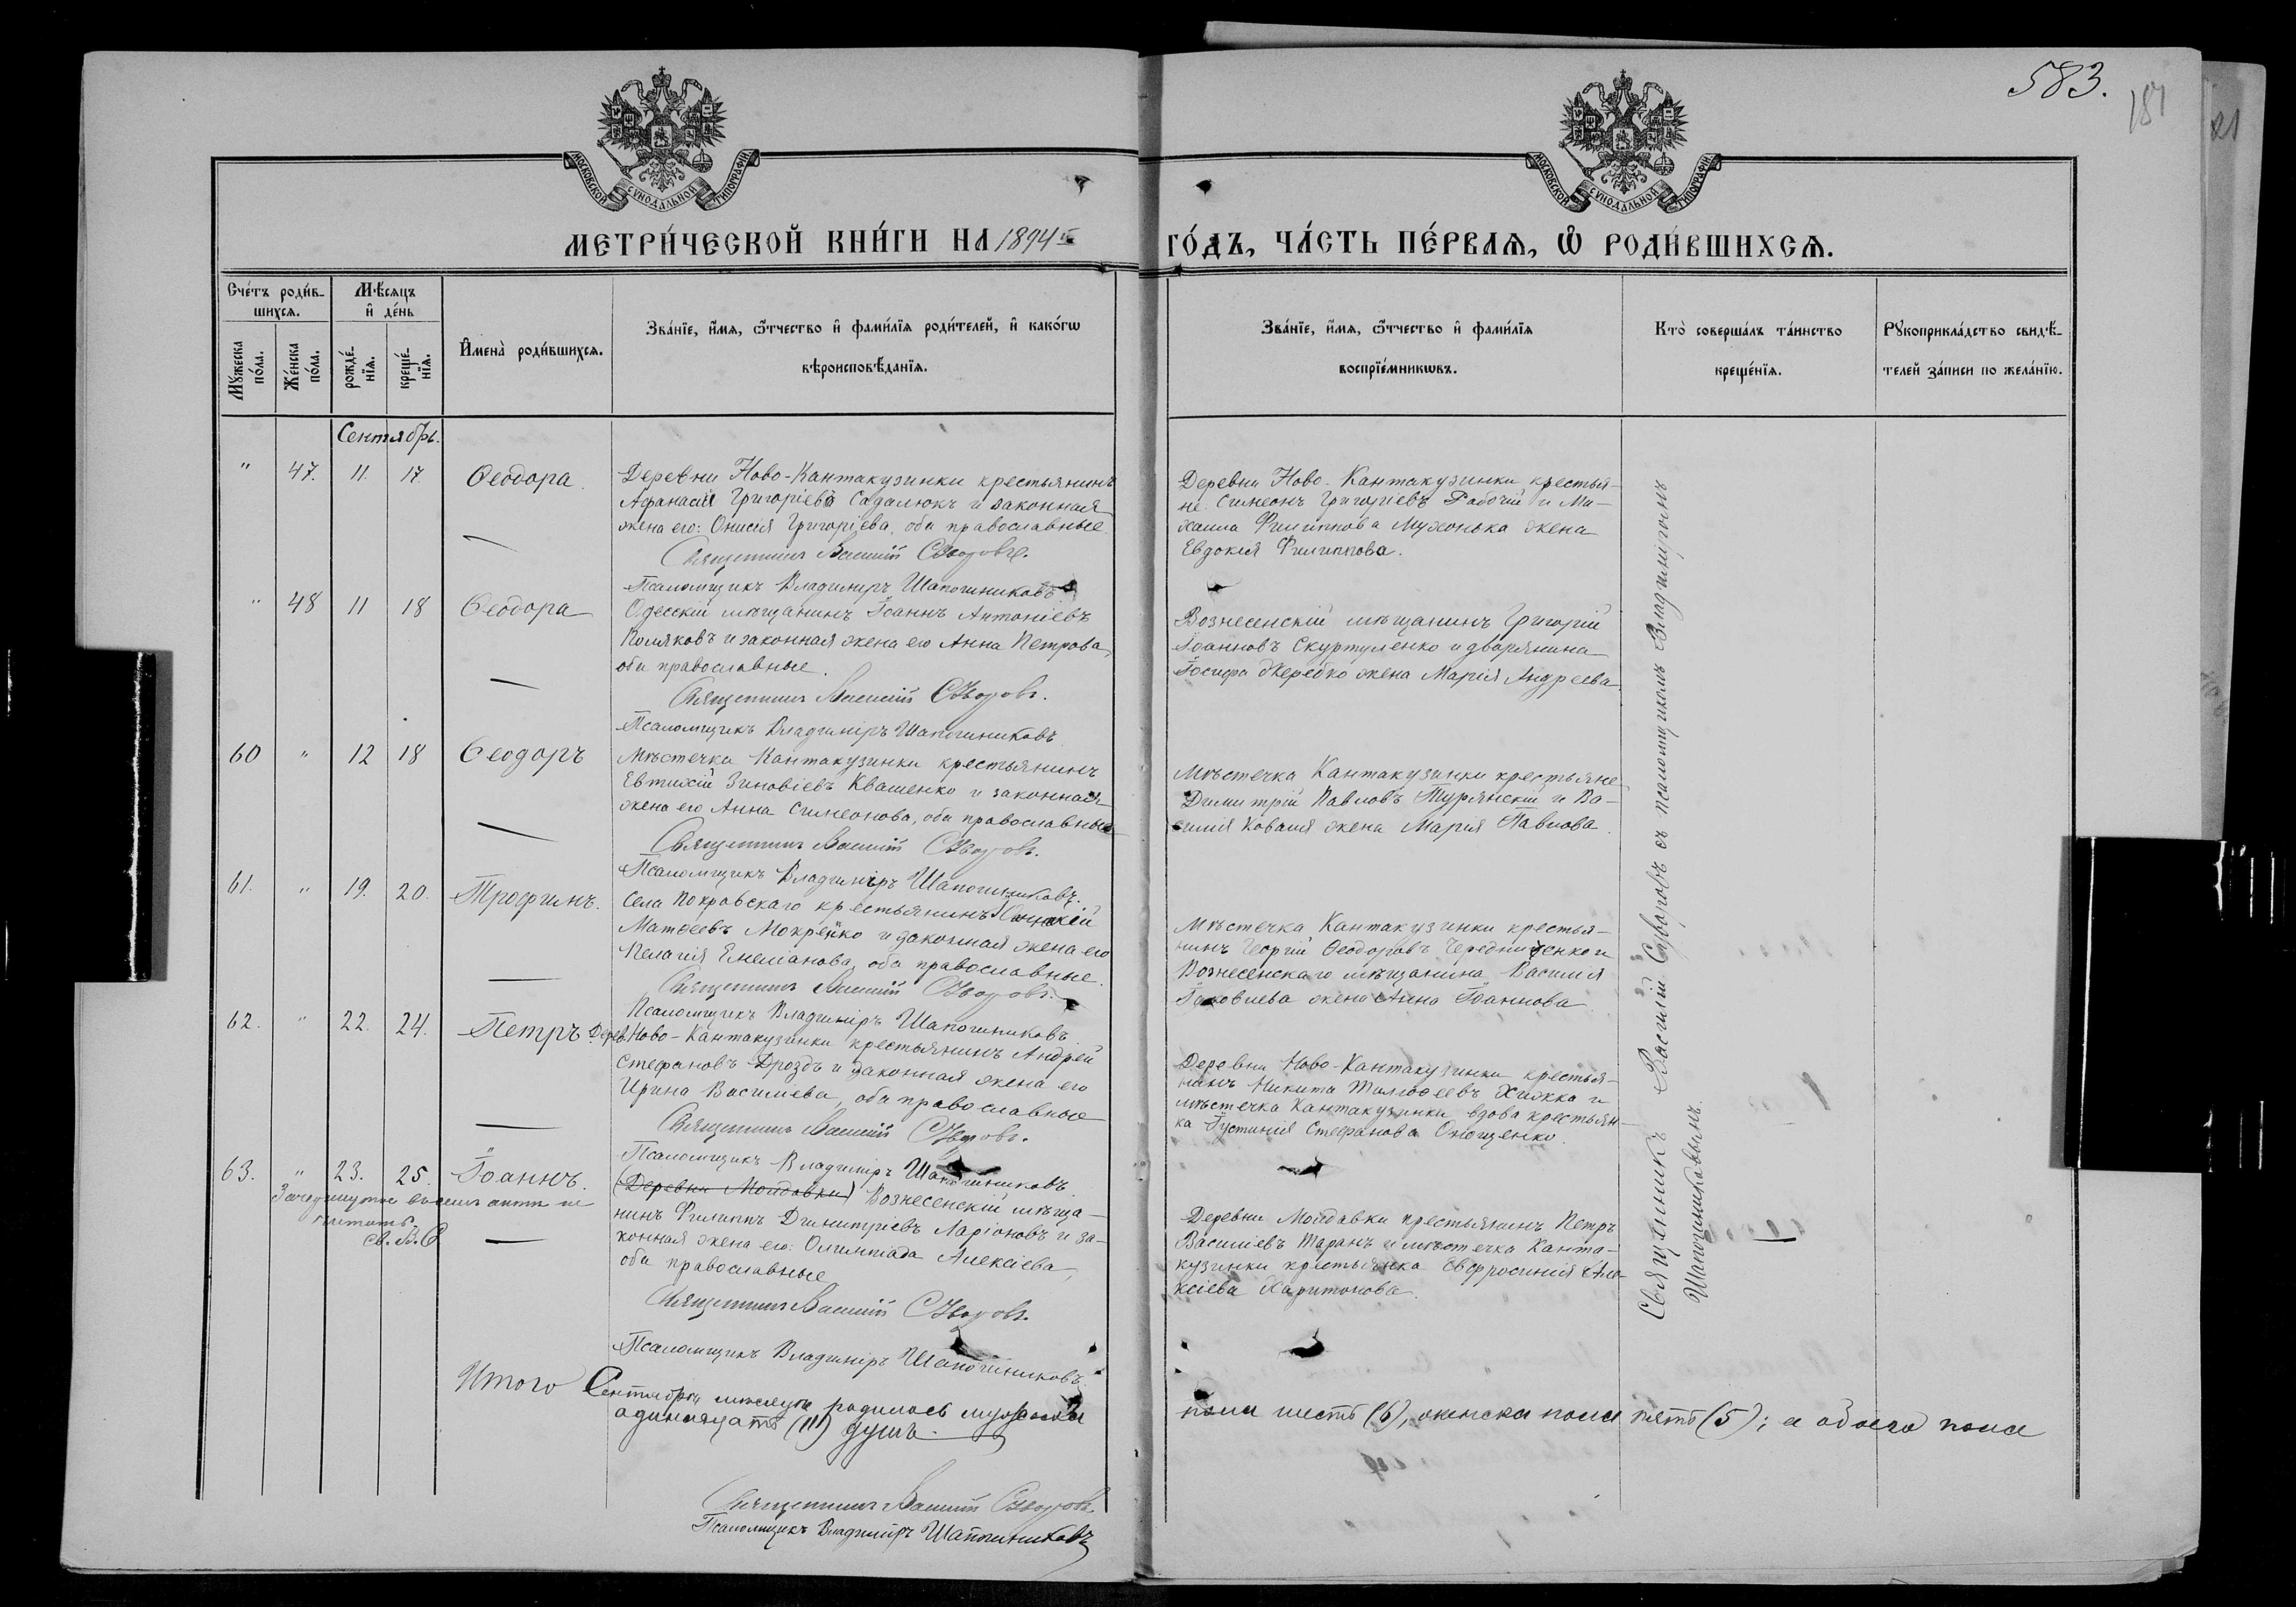 583.
181
21
МОСКОВСКОЙ СѴНОДАЛЬНОЙ ТИПОГРАФІИ
МОСКОВСКОЙ СѴНОДАЛЬНОЙ ТИПОГРАФІИ
МЕТРИ́ЧЕСКОЙ КНИ́ГИ НА 1894 ГО́ДЪ, ЧА́СТЬ ПЕ́РВАѦ, Ѽ РОДИ́ВШИХСѦ.
Сче́тъ роди́в-
шихсѧ.
Мꙋ́жеска по́ла.
Же́нска по́ла.
Мѣ́сяцъ
и҆ де́нь
рожде́-
нїѧ.
креще́-
нїѧ.
И҆мена̀ роди́вшихсѧ.
Зва́нїе, и҆́мѧ, ѻ҆́тчество и҆ фами́лїѧ роди́телей, и҆ како́гѡ
вѣроисповѣ́данїѧ.
Зва́нїе, и҆́мѧ, ѻ҆́тчество и҆ фами́лїѧ
воспрїе́мникѡвъ.
Кто̀ соверша́лъ та́инство
креще́нїѧ.
Рꙋкоприкла́дство свидѣ́-
телей за́писи по жела́нїю.
Сентябрь.
" 47. 11. 17. Ѳеодора.
Деревни Ново-Кантакузинки крестьянинъ
Аѳанасій Григоріевъ Садалюкъ и законная
жена его: Онисія Григоріева, оба православные.
Священникъ Василій Суворовъ.
Псаломщикъ Владиміръ Шапошниковъ
Деревни Ново-Кантакузинки крестья-
не Симеонъ Григоріевъ Рабочій и Ми-
хаила Филиппова Мухонька жена
Евдокія Филиппова.
" 48 11 18 Ѳеодора
Одесскій мѣщанинъ Іоаннъ Антоніевъ
Поляковъ и законная жена его Анна Петрова,
оба православные.
Священникъ Василій Суворовъ.
Псаломщикъ Владиміръ Шапошниковъ
Вознесенскій мѣщанинъ Григорій
Іоанновъ Скуртуленко и дворянина
Іосифа Жеребко жена Марія Андреева
60 " 12 18 Ѳеодоръ
Мѣстечка Кантакузинки крестьянинъ
Евтихій Зиновіевъ Квашенко и законная
жена его Анна Симеонова, оба православные
Священникъ Василій Суворовъ.
Псаломщикъ Владиміръ Шапошниковъ.
Мѣстечка Кантакузинки крестьяне
Димитрій Павловъ Турянскій и Ва-
силія Коваля жена Марія Павлова.
61. " 19. 20. Трофимъ.
Села Покровскаго крестьянинъ
Матѳеевъ Мокрейко и законная жена его
Пелагія Емеліанова, оба православные.
Священникъ Василій Суворовъ.
Псаломщикъ Владиміръ Шапошниковъ
Мѣстечка Кантакузинки крестья-
нинъ Георгій Ѳеодоровъ Чередниченко и
Вознесенскаго мѣщанина Василія
Яковлева жена Анна Іоаннова
62. " 22. 24. Петръ
Дерев. Ново-Кантакузинки крестьянинъ Андрей
Стефановъ Дроздъ и законная жена его
Ирина Василіева, оба православные
Священникъ Василій Суворовъ.
Псаломщикъ Владиміръ Шапошниковъ
Деревни Ново-Кантакузинки крестья-
нинъ Никита Тимоѳеевъ Хижка и
мѣстечка Кантакузинки вдова крестьян-
ка Іустинія Стефанова Онощенко.
63. " 23. 25. Іоаннъ.
Зачеркнутое въ семъ актѣ не
читать.
Св. В. С.
(Деревни Молдавки) Вознесенскій мѣща-
нинъ Филиппъ Димитріевъ Ларіоновъ и за-
конная жена его: Олимпіада Алексіева,
оба православные
Священникъ Василій Суворовъ.
Псаломщикъ Владиміръ Шапошниковъ.
Деревни Молдавки крестьянинъ Петръ
Василіевъ Таранъ и мѣстечка Канта-
кузинки крестьянка Евфросинія Але-
ксіева Харитонова.
Священникъ Василій Суворовъ съ псаломщикомъ Владиміромъ
Шапошниковымъ.
Итого Сентябрѣ мѣсяцѣ родилось мужеска пола шесть (6), женска пола пять (5); а обоего пола
одинадцать (11) душъ.
Священникъ Василій Суворовъ.
Псаломщикъ Владиміръ Шапошниковъ